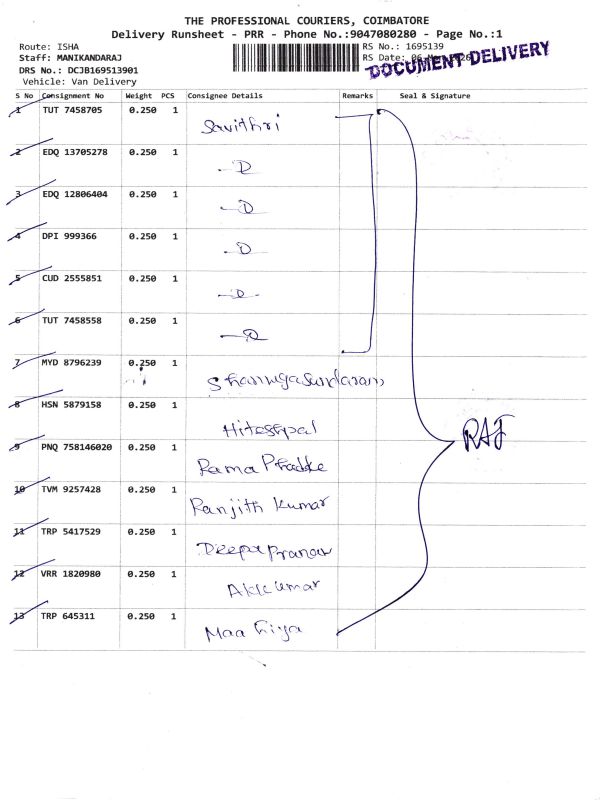 THE PROFESSIONAL COURIERS, COIMBATORE
Delivery Runsheet - PRR - Phone No.:9047080280 - Page No.:1
Route: ISHA RS No.: 1695139
Staff: MANIKANDARAJ RS Date: 06
DRS No.: DCJB169513901 DOCUMENT DELIVERY
Vehicle: Van Delivery
S No Consignment No Weight PCS Consignee Details Remarks Seal & Signature
1 TUT 7458705 0.250 1 Savithri
2 EDQ 13705278 0.250 1 —D
3 EDQ 12806404 0.250 1 —D
4 DPI 999366 0.250 1 —D
5 CUD 2555851 0.250 1 —D
6 TUT 7458558 0.250 1 —D
7 MYD 8796239 0.250 1 Shanmugasundaram
8 HSN 5879158 0.250 1 Hiteshpal
9 PNQ 758146020 0.250 1 Rama Phadke
RAJ
10 TVM 9257428 0.250 1 Ranjith Kumar
11 TRP 5417529 0.250 1 Deepa Pranav
12 VRR 1820980 0.250 1
13 TRP 645311 0.250 1 Maa